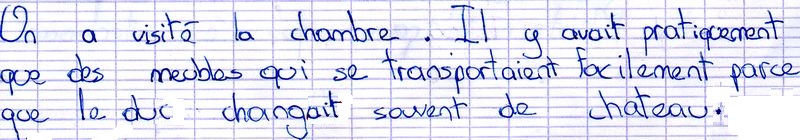 On a visité la chambre. Il y avait pratiquement
que des meubles qui se transportaient facilement parce
que le duc changait souvent de chateau.